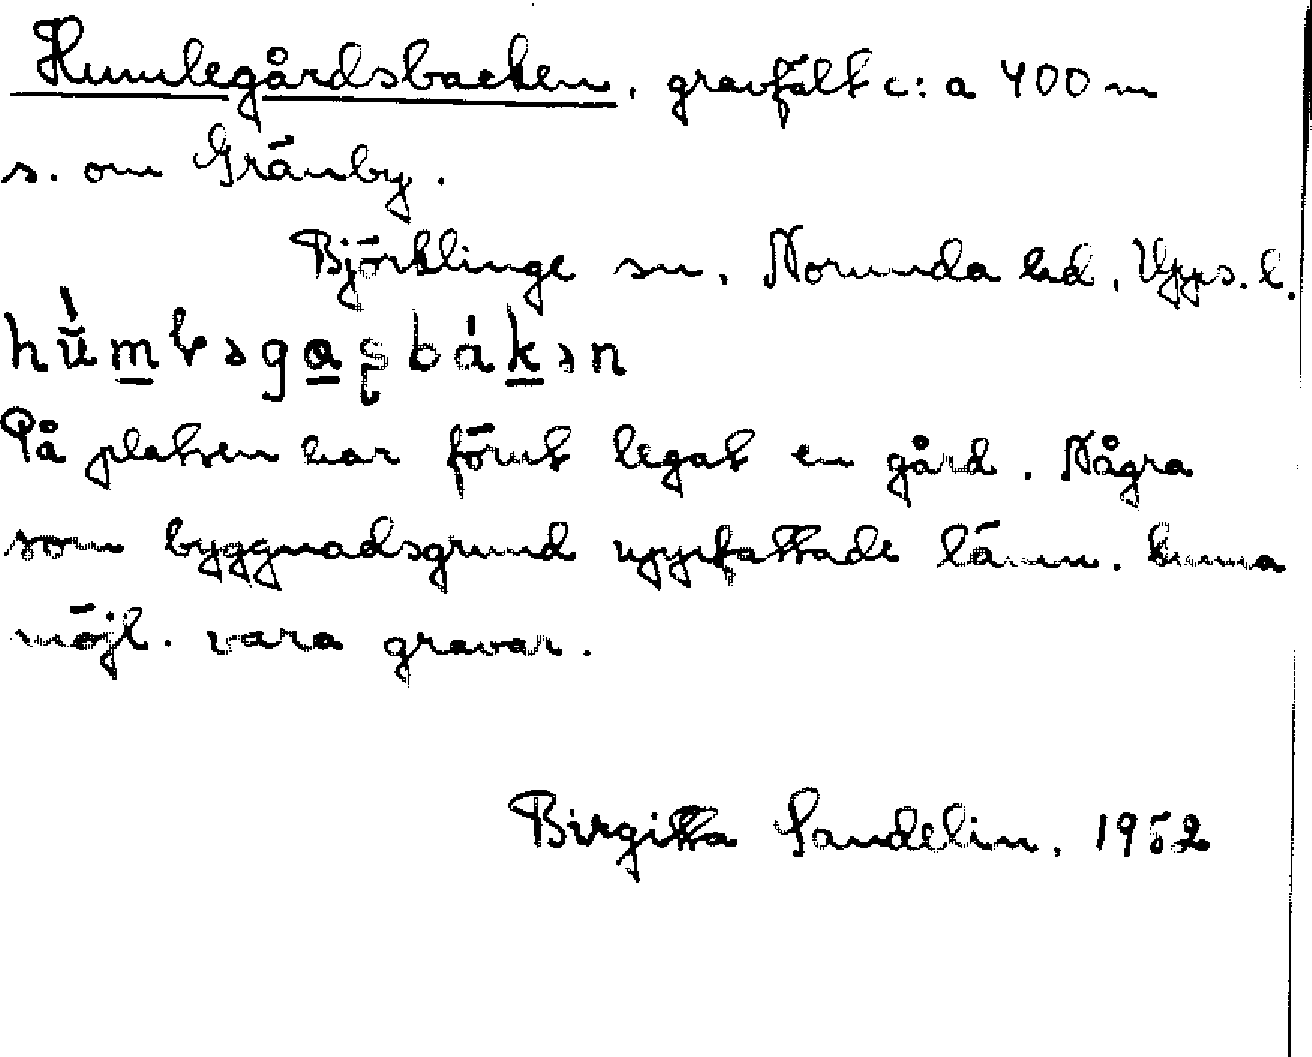 Humlegårdsbacken, gravfält c:a 400 m
s. om Gränby.
Björklinge sn, Norunda hd, Upps. l.
hŭ́mləgaʂbákən
På platsen har förut legat en gård. Några
som byggnadsgrund uppfattade lämn. kunna
möjl. vara gravar.
Birgitta Sandelin, 1952